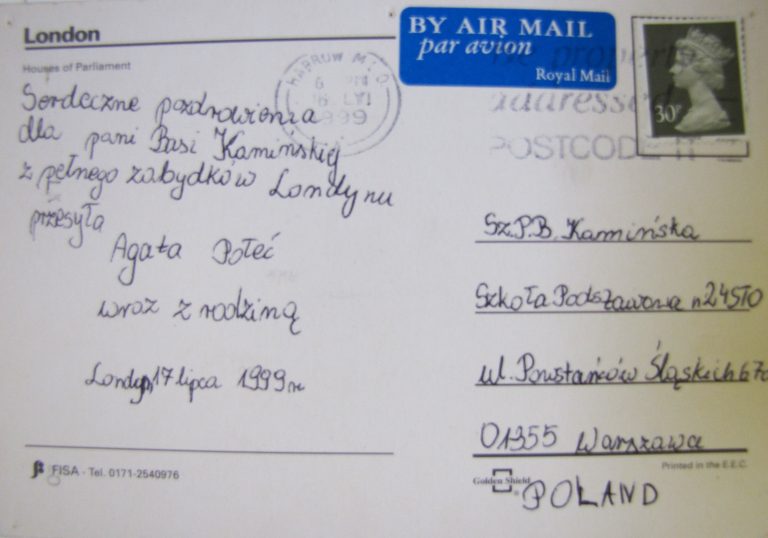 London
Houses of Parliament
BY AIR MAIL
par avion
Royal Mail
30P
HARROW M.L.O
6 PM
1999
addressed
POSTCODE IT
Serdeczne pozdrowienia
dla pani Basi Kamińskiej
z pełnego zabydków Londynu
przesyła
Agata Połeć
wraz z rodziną
Londyn, 17 lipca 1999r
FISA - Tel. 0171-2540976
Sz.P.B. Kamińska
Szkoła Podstawowa n
ul. Powstańców Śląskich 67a
01355 Warszawa
Printed in the E.E.C.
Golden Shield
POLAND